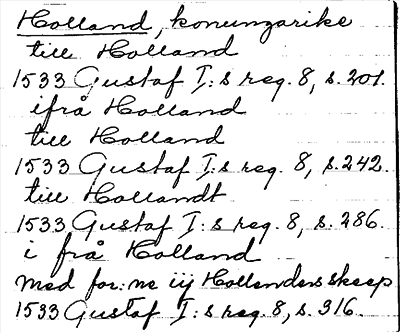 Holland, konungarike
till Holland
1533 Gustaf I:s reg. 8, s. 201.
ifrå Holland
till Holland
1533 Gustaf I:s reg. 8, s. 242.
till Hollandt
1533 Gustaf I:s reg. 8, s. 286.
i från Holland
med for:ne iij Hollenders skeep
1533 Gustaf I:s reg. 8, s. 316.